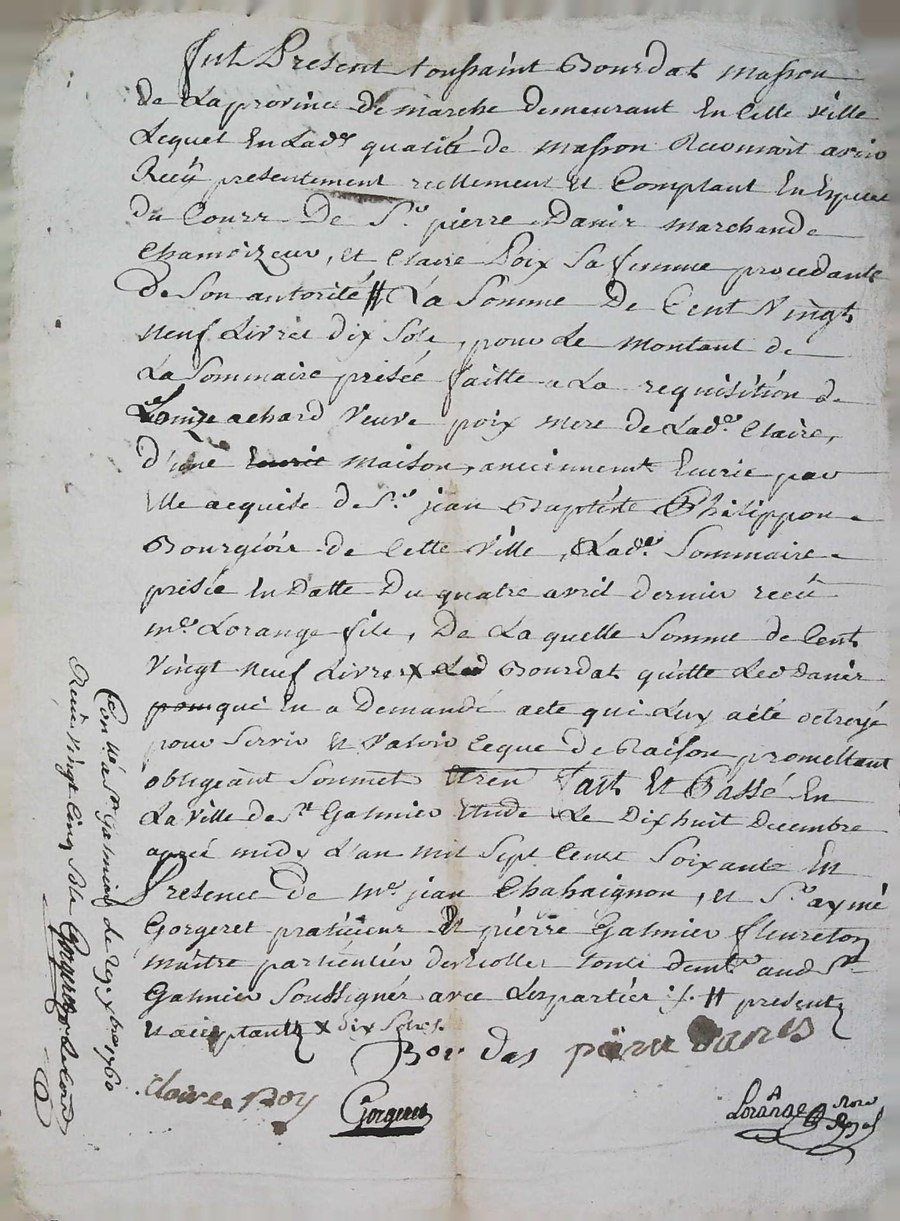 fut Present toussaint Bourdat masson
de Laprovince de marche demeurant En Cette Ville
Lequel En Lad.e qualité de masson Reconnoit avoir
Reçû presentement reellement Et Comptant En Especes
du Cours De S.r pierre Danis marchand
Chamoizeur, et Claire Poix Sa femme procedante
De Son autorité # La Somme De Cent Vingt
neuf Livres dix Sols, pour Le montant de
La Sommaire prisée faitte a La requisition de
Louize achard Veuve poix mere de Lad.e Claire,
d'une Ecurie maison, anciennem.t Ecurie par
Elle acquise de S.r jean Baptiste Philippon
Bourgeois de Cette Ville, Lad.e Sommaire
prisée En Datte Du quatre avril dernier reçû
m.e Lorange fils, De La quelle Somme de Cent
Vingt neuf Livres x Led Bourdat quitte Led Danis
pour que En a Demandé acte qui Luy a été octroyé
pour Servir Et Valoir Ceque de Raison promettant
obligeant Soumet. Fait Et Passé En
La Ville de S.t Galmier Etude Le Dixhuit Decembre
après midy L'an mil Sept Cent Soixante En
Presence De m.e jean Chahaignon, et S.r aymé
Gorgeret praticiens Et pierre Galmier fleureton
maître particulier tous dem.ts aud S.t
Galmier Soussignés avec Les parties ./. # present
Et acceptant x dix Sols.
Bourdas pierre danis
Claire Poy Gorgeret Lorange Not.re Royal
Con.llé a S.t Galmier le 29 xbre 1760
Reçu Vingt Cinq Sols Gorgeret